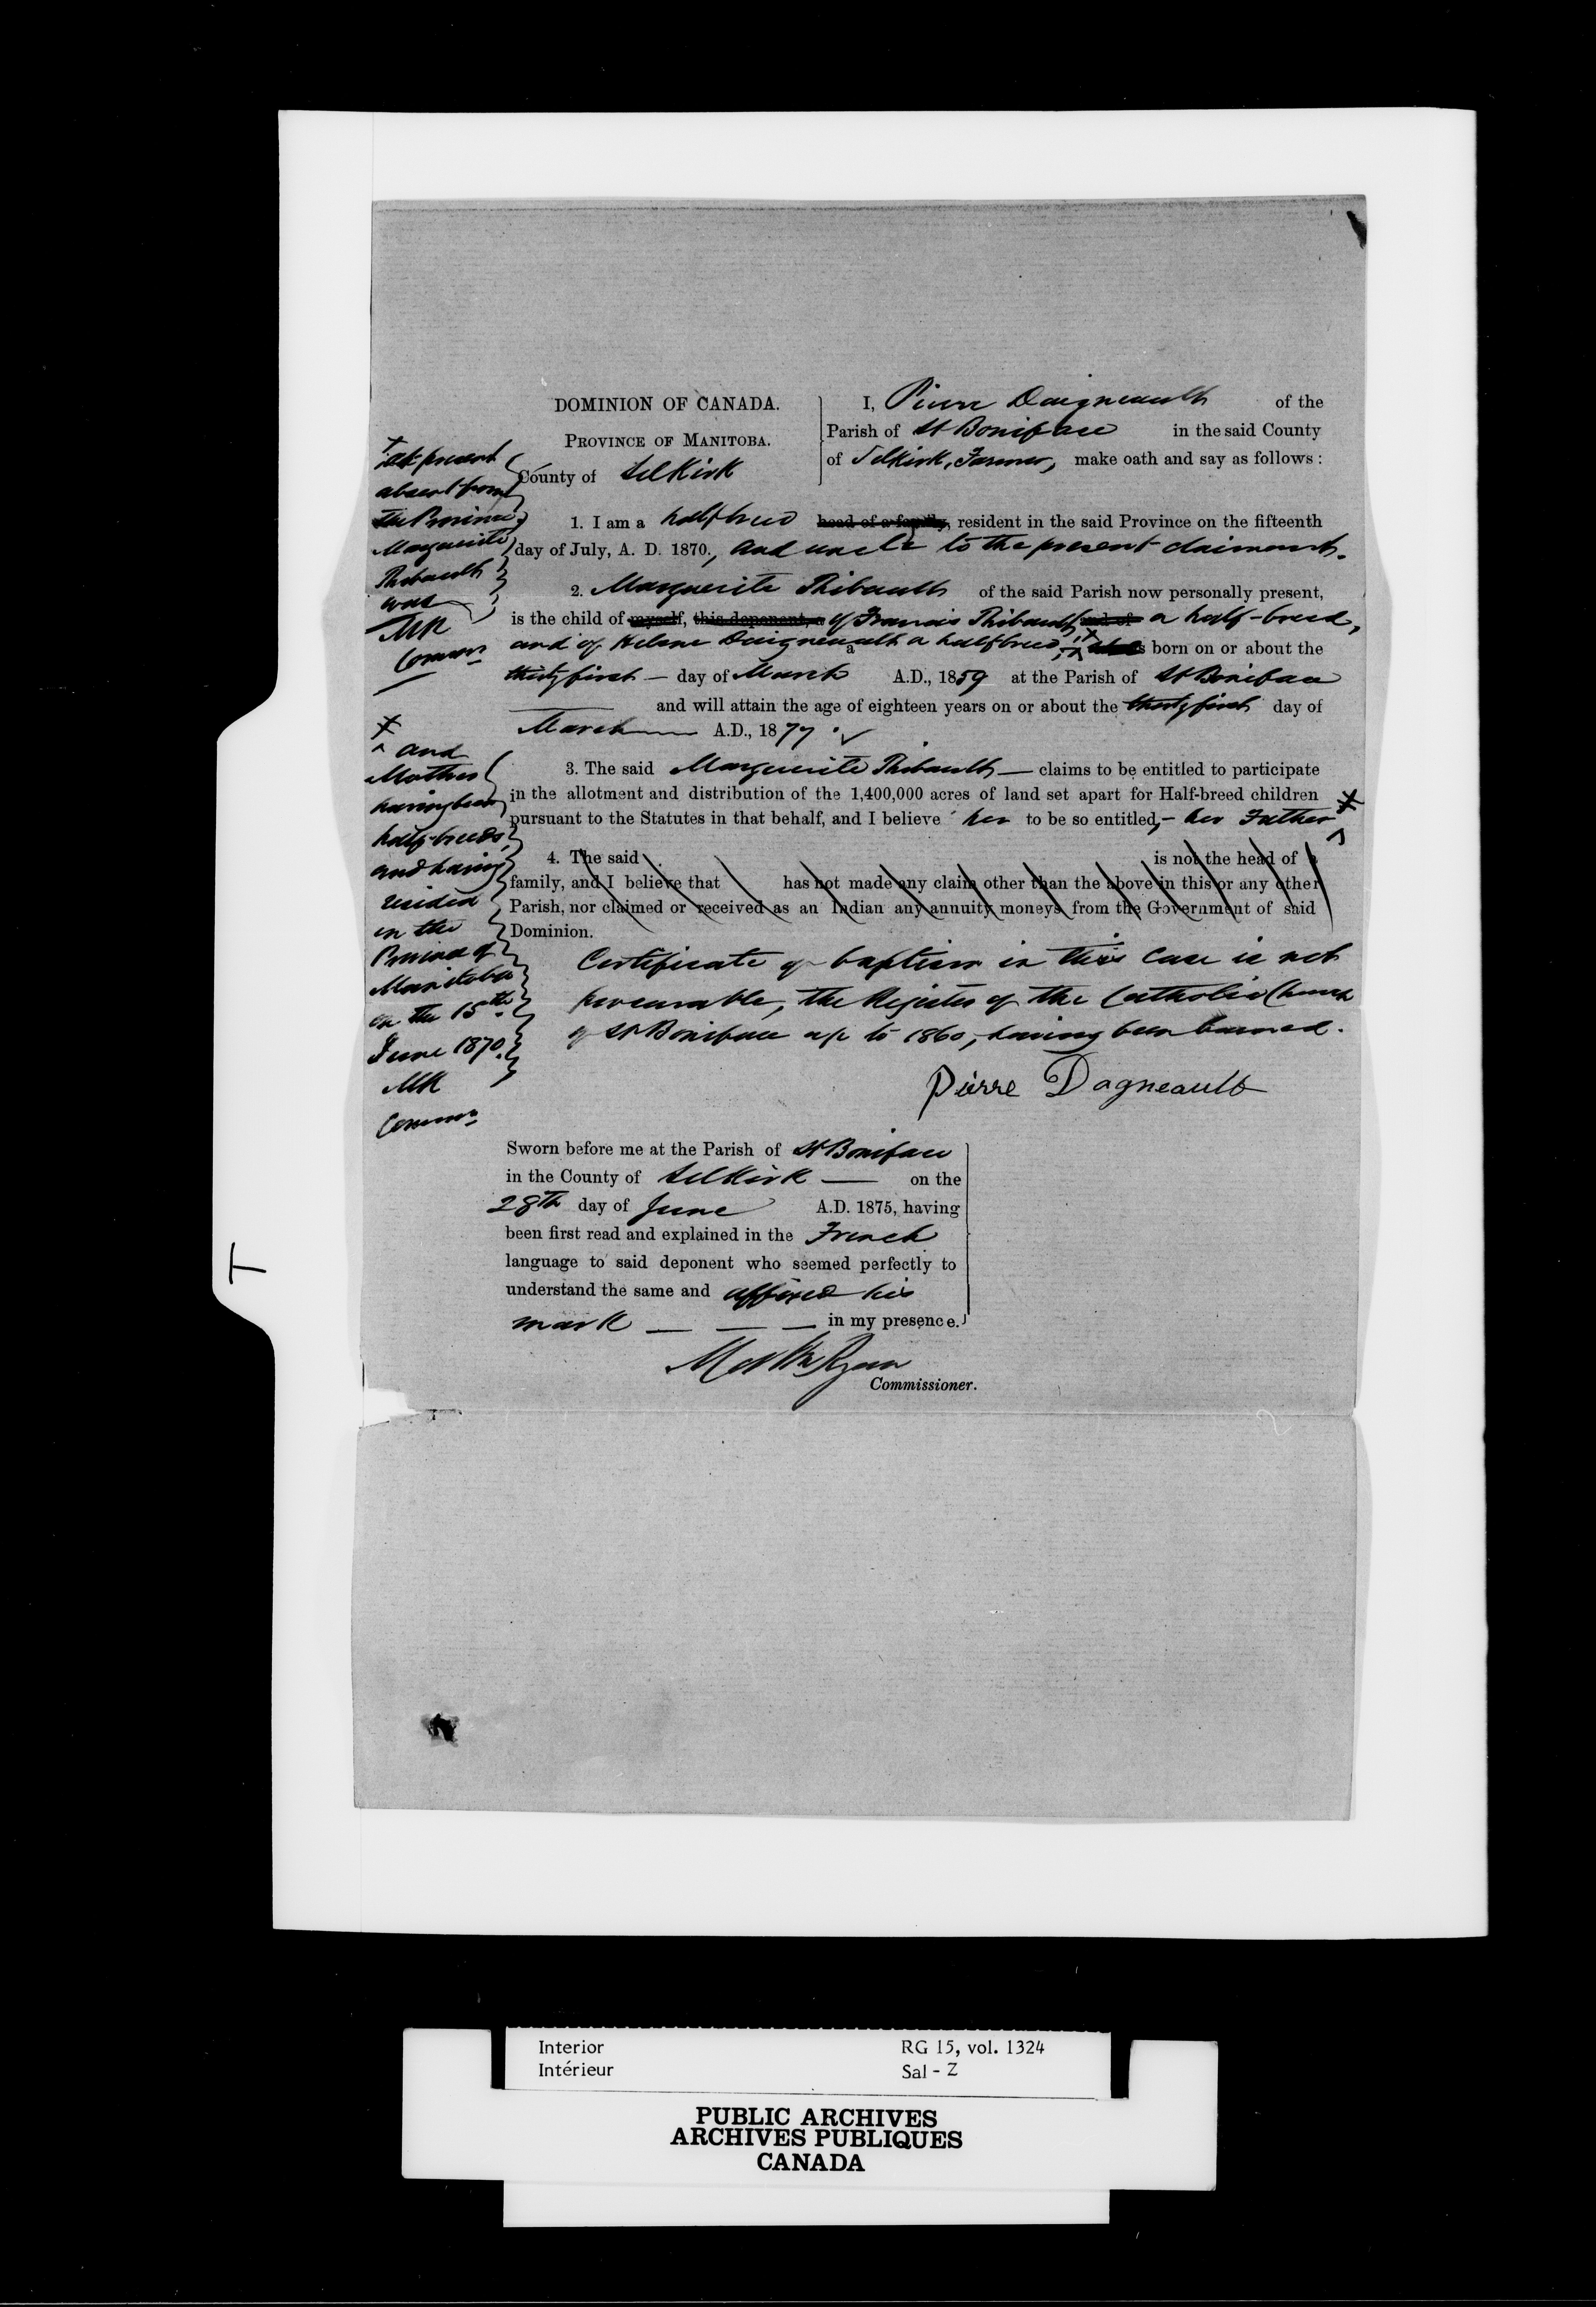 DOMINION OF CANADA.
PROVINCE OF MANITOBA.
County of Selkirk
I, Pierre Daigneault of the
Parish of St Boniface in the said County
of Selkirk, Farmer, make oath and say as follows:
1. I am a halfbreed head of a family, resident in the said Province on the fifteenth
day of July, A. D. 1870., and uncle to the present claimant.
2. Marguerite Thibault of the said Parish now personally present,
is the child of myself, this deponent, a of Francis Thibault and of a half-breed,
and of Helene Daigneault a halfbreed, born on or about the
thirty first — day of March A.D., 1859 at the Parish of St Boniface
and will attain the age of eighteen years on or about the thirty first day of
March A.D., 1877.
3. The said Marguerite Thibault — claims to be entitled to participate
in the allotment and distribution of the 1,400,000 acres of land set apart for Half-breed children
pursuant to the Statutes in that behalf, and I believe her to be so entitled, — her Father
4. The said is not the head of a
family, and I believe that has not made any claim other than the above in this or any other
Parish, nor claimed or received as an Indian any annuity moneys from the Government of said
Dominion.
Certificate of baptism in this case is not
procurable, the Register of the Catholic Church
of St Boniface up to 1860, having been burned.
Pierre Dagneault
+ at present
absent from
the Province,
Marguerite
Thibault
was
MR
Commr
and
Mother
having been
half-breeds,
and having
resided
in the
Province of
Manitoba
on the 15th
June 1870.
MR
Commr
Sworn before me at the Parish of St Boniface
in the County of Selkirk — on the
28th day of June A.D. 1875, having
been first read and explained in the French
language to said deponent who seemed perfectly to
understand the same and affixed his
mark — — — in my presence.
Ryan
Commissioner.
T
Interior RG 15, vol. 1324
Intérieur Sal - Z
PUBLIC ARCHIVES
ARCHIVES PUBLIQUES
CANADA